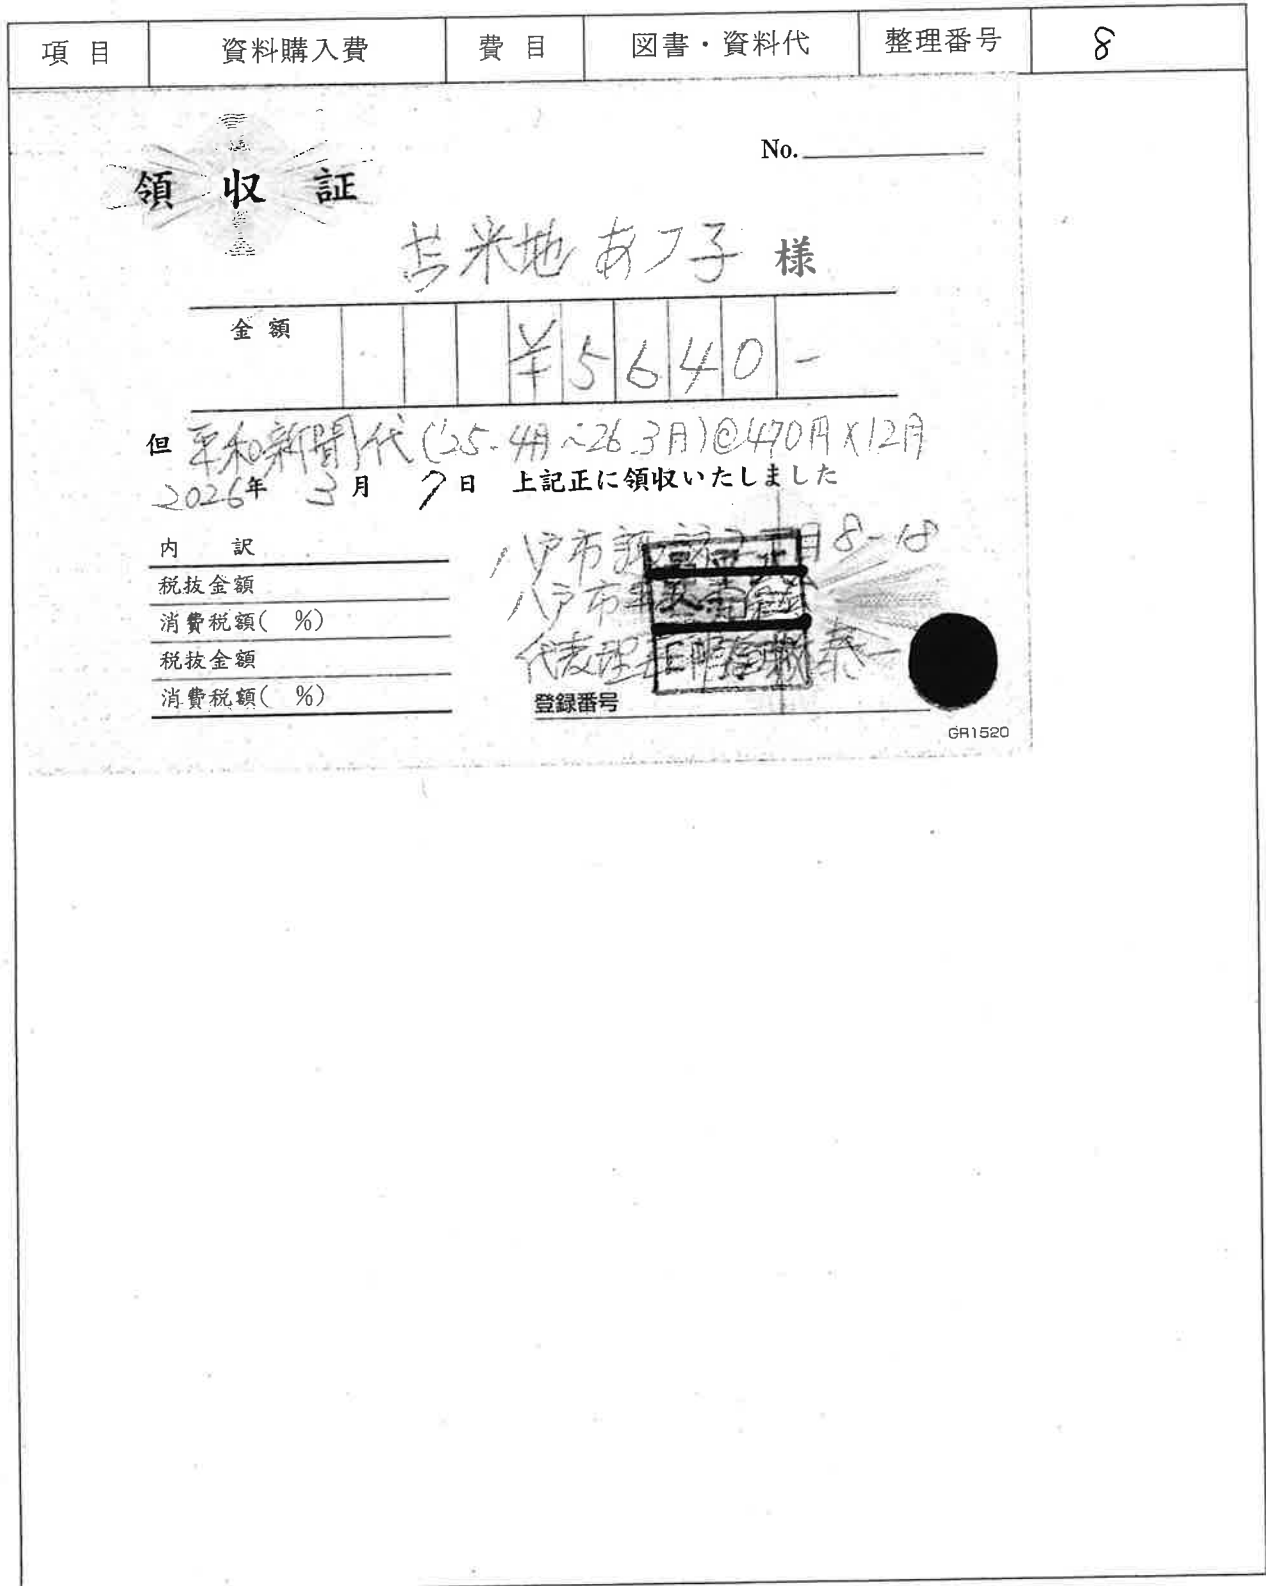 項目 資料購入費 費目 図書・資料代 整理番号 8
No.
領収証
苫米地あつ子様
金額 ¥5640-
但 平和新聞代('25.4月〜26.3月)@470円×12月
2026年 3月 7日 上記正に領収いたしました
内訳
税抜金額
消費税額( %)
税抜金額
消費税額( %)
八戸市 8-18
八戸市
代表理
登録番号
GR1520